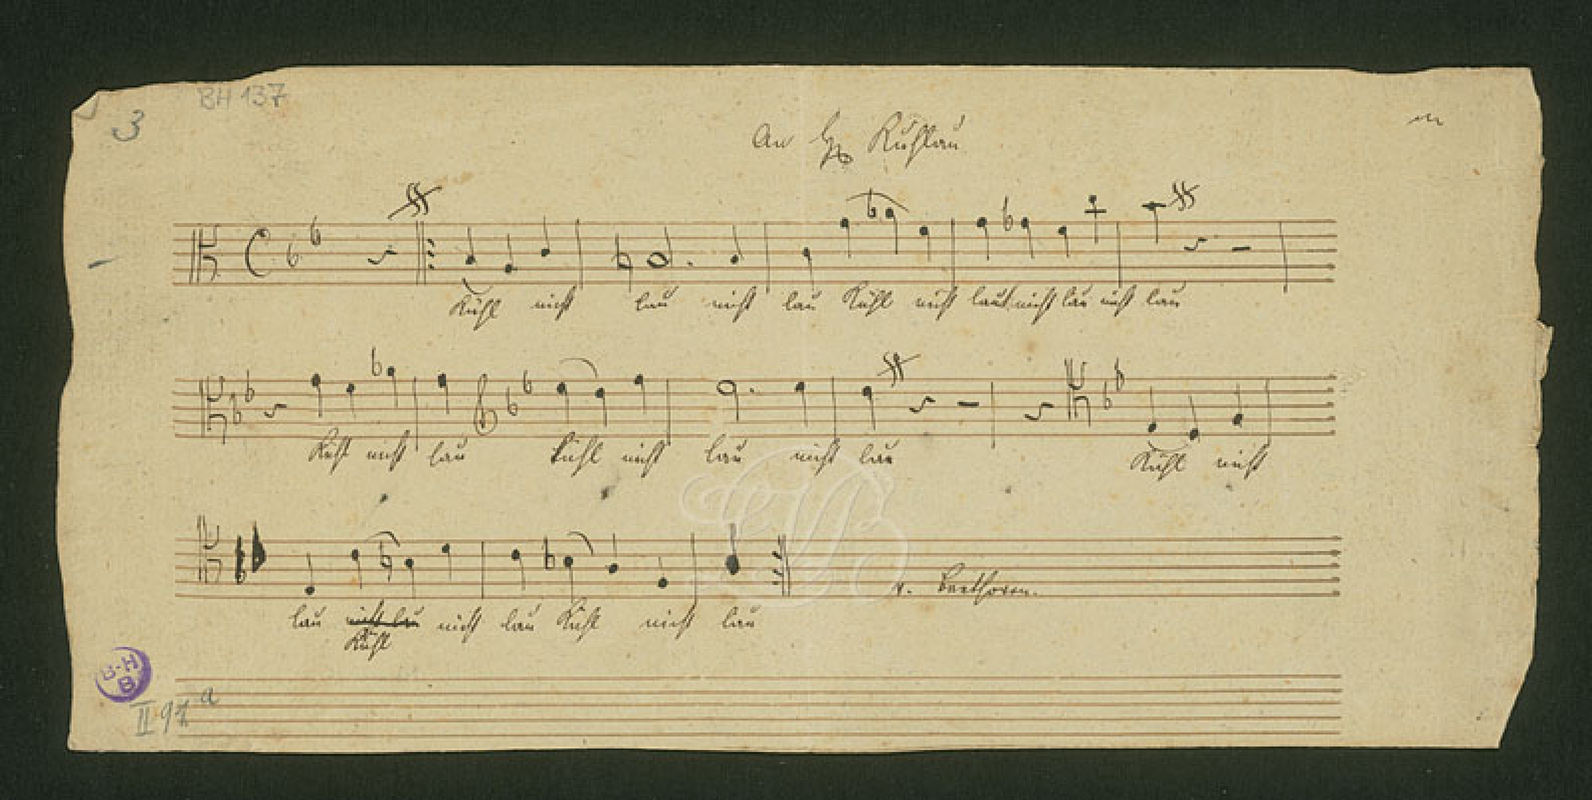 BH 137
3
An H. Kuhlau
Kühl nicht lau nicht lau Kühl nicht lau nicht lau nicht lau
Kühl nicht lau Kühl nicht lau nicht lau Kühl nicht
lau nicht lau nicht lau Kühl nicht lau
Kühl
v. Beethoven.
B-H
B